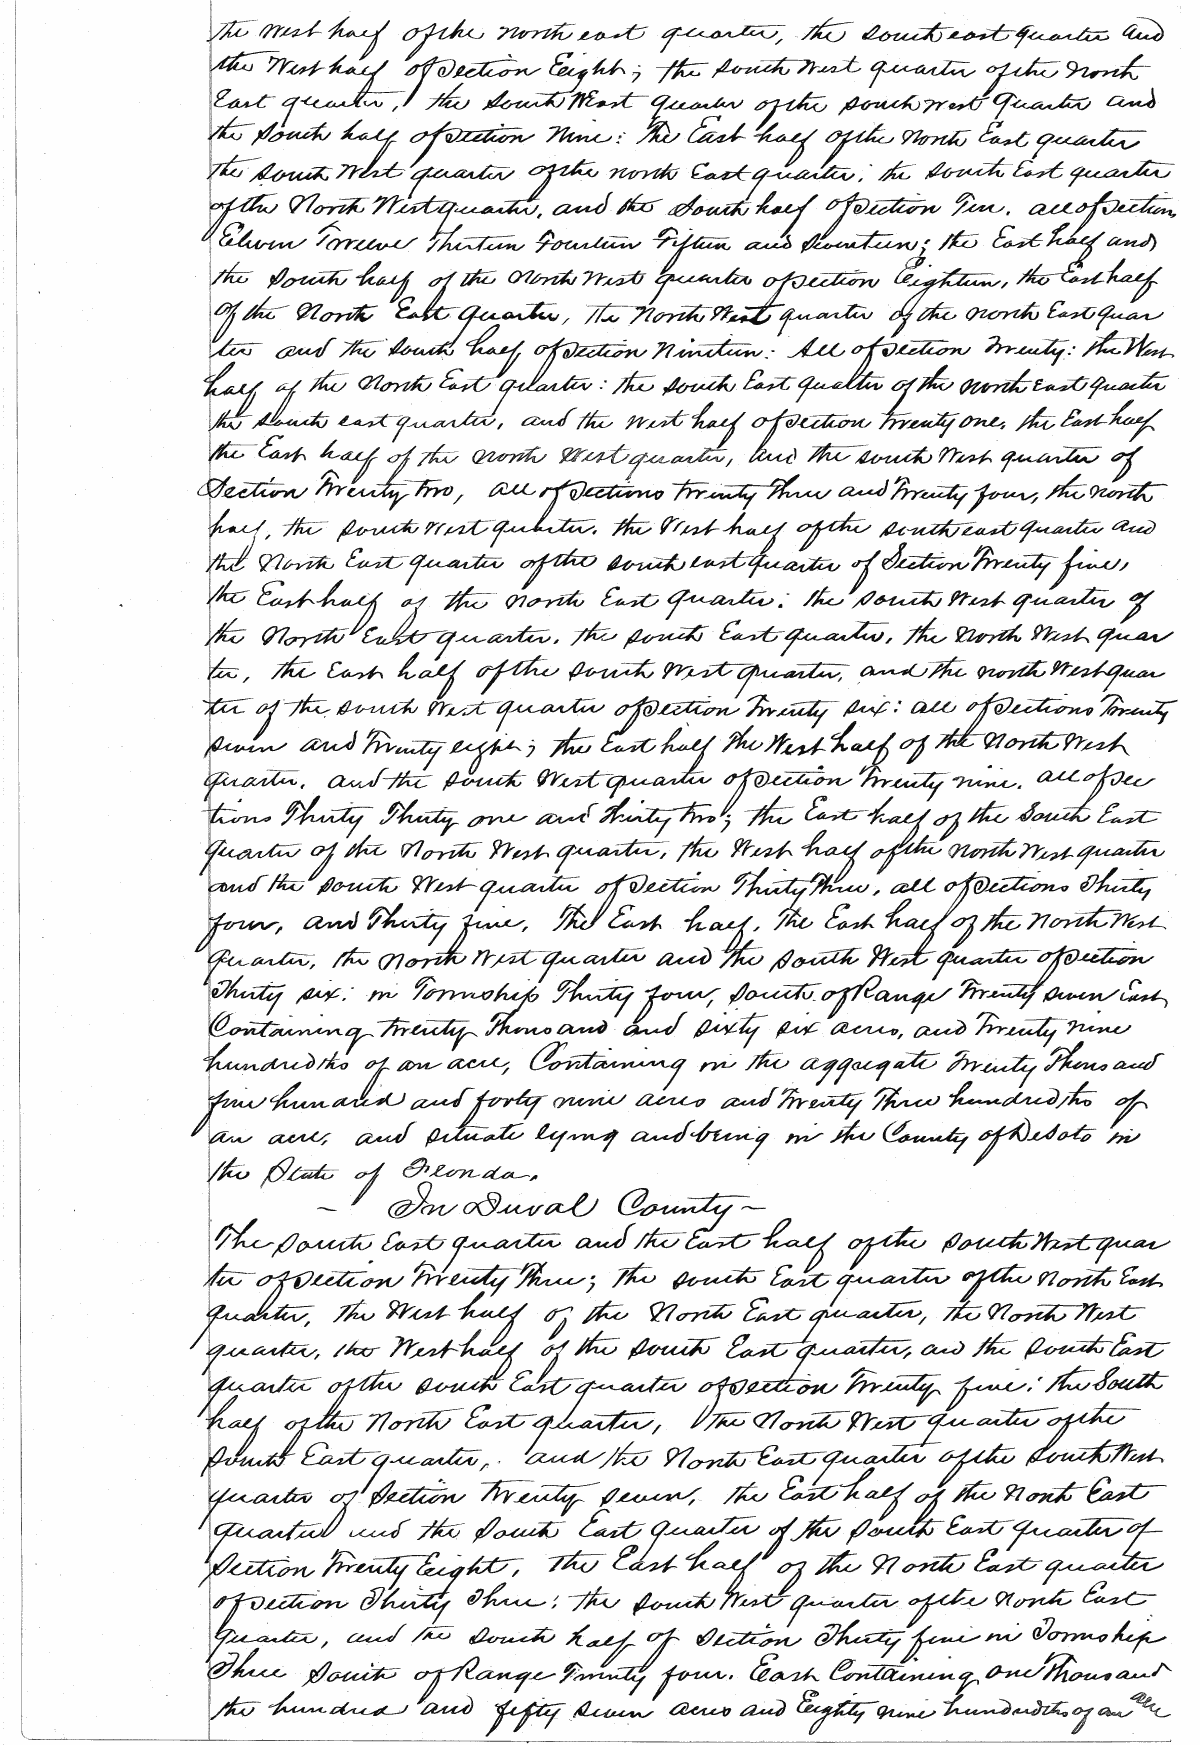 the West half of the north east quarter, the south east quarter and
the West half of Section Eight; the South West quarter of the North
East quarter, the South West quarter of the South west Quarter and
the South half of Section Nine: The East half of the North East quarter
the South West quarter of the north East quarter; the South East quarter
of the North West quarter, and the South half of Section Ten. all of Sections
Eleven Twelve Thirteen Fourteen Fifteen and Seventeen; the East half and
the South half of the North West quarter of Section Eighteen, the East half
of the North East Quarter, the North West quarter of the north East quar
ter and the South half of Section Nineteen: All of Section Twenty: the West
half of the North East quarter: the South East quarter of the north east quarter
the South east quarter, and the West half of Section Twenty one, the East half
the East half of the north West quarter, and the South West quarter of
Section Twenty two, all of Sections twenty Three and Twenty four, the north
half, the South West quarter. the West half of the South east quarter and
the North East quarter of the south east quarter of Section Twenty five,
the East half of the North East Quarter: the South West quarter of
the North East quarter. the South East quarter, the North West quar
ter, the East half of the South West quarter, and the north West quar
ter of the South West quarter of Section Twenty six: all of Sections Twenty
seven and Twenty eight; the East half the West half of the North West
quarter. and the South West quarter of Section Twenty nine. all of Sec
tions Thirty Thirty one and Thirty two; the East half of the South East
Quarter of the North West quarter, the West half of the north West quarter
and the South West quarter of Section Thirty Three, all of Sections Thirty
four, and Thirty five, The East half, The East half of the North West
Quarter, the North West quarter and the South West quarter of Section
Thirty six: in Township Thirty four, South of Range Twenty seven East
Containing twenty Thousand and sixty six acres, and Twenty nine
hundredths of an acre, Containing in the aggregate Twenty Thousand
five hundred and forty nine acres and Twenty Three hundredths of
an acre, and situate lying and being in the County of DeSoto in
the State of Florida.
– In Duval County –
The South East quarter and the East half of the South West quar
ter of Section Twenty Three; the South East quarter of the North East
quarter, the West half of the North East quarter, the North West
quarter, the West half of the South East quarter, and the South East
quarter of the South East quarter of Section Twenty five: the South
half of the North East quarter, the North West quarter of the
South East quarter, and the North East quarter of the South West
quarter of Section Twenty Seven, the East half of the North East
Quarter and the South East Quarter of the South East Quarter of
Section Twenty Eight, the East half of the North East quarter
of Section Thirty Three: the South West quarter of the North East
Quarter, and the South half of Section Thirty five in Township
Three South of Range Twenty four. East Containing one Thousand
the hundred and fifty seven acres and Eighty nine hundredths of an acre